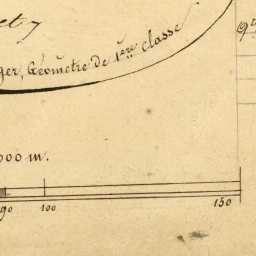 ger, Géomètre de 1ère classe
000 m.
90 100 150